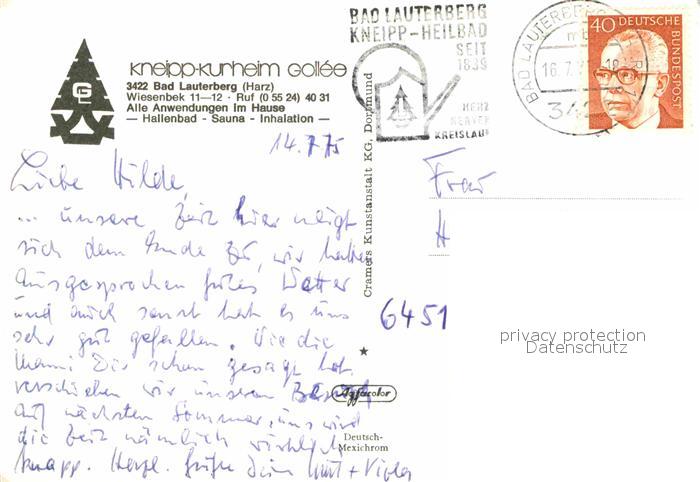 kneipp-kurheim Gollée
3422 Bad Lauterberg (Harz)
Wiesenbek 11—12 · Ruf (0 55 24) 40 31
Alle Anwendungen im Hause
— Hallenbad - Sauna - Inhalation —
G
BAD LAUTERBERG
KNEIPP-HEILBAD
SEIT
1839
HERZ
NERVEN
KREISLAUF
BAD LAUTERBERG
16.7.
342
40 DEUTSCHE
BUNDESPOST
14.7.75
Liebe Hilde,
... unsere Zeit hier neigt
sich dem Ende zu, wir hatten
ausgesprochen gutes Wetter
und auch sonst hat es uns
sehr gut gefallen. Wie die
Mami Dir schon gesagt hat,
verschieben wir unseren Besuch
auf nächsten Sommer, uns wird
die Zeit nämlich wirklich
knapp. Herzl. Grüße Dein
Cramers Kunstanstalt KG, Dortmund
Frau
H
6451
Agfacolor
Deutsch-
Mexichrom
privacy protection
Datenschutz